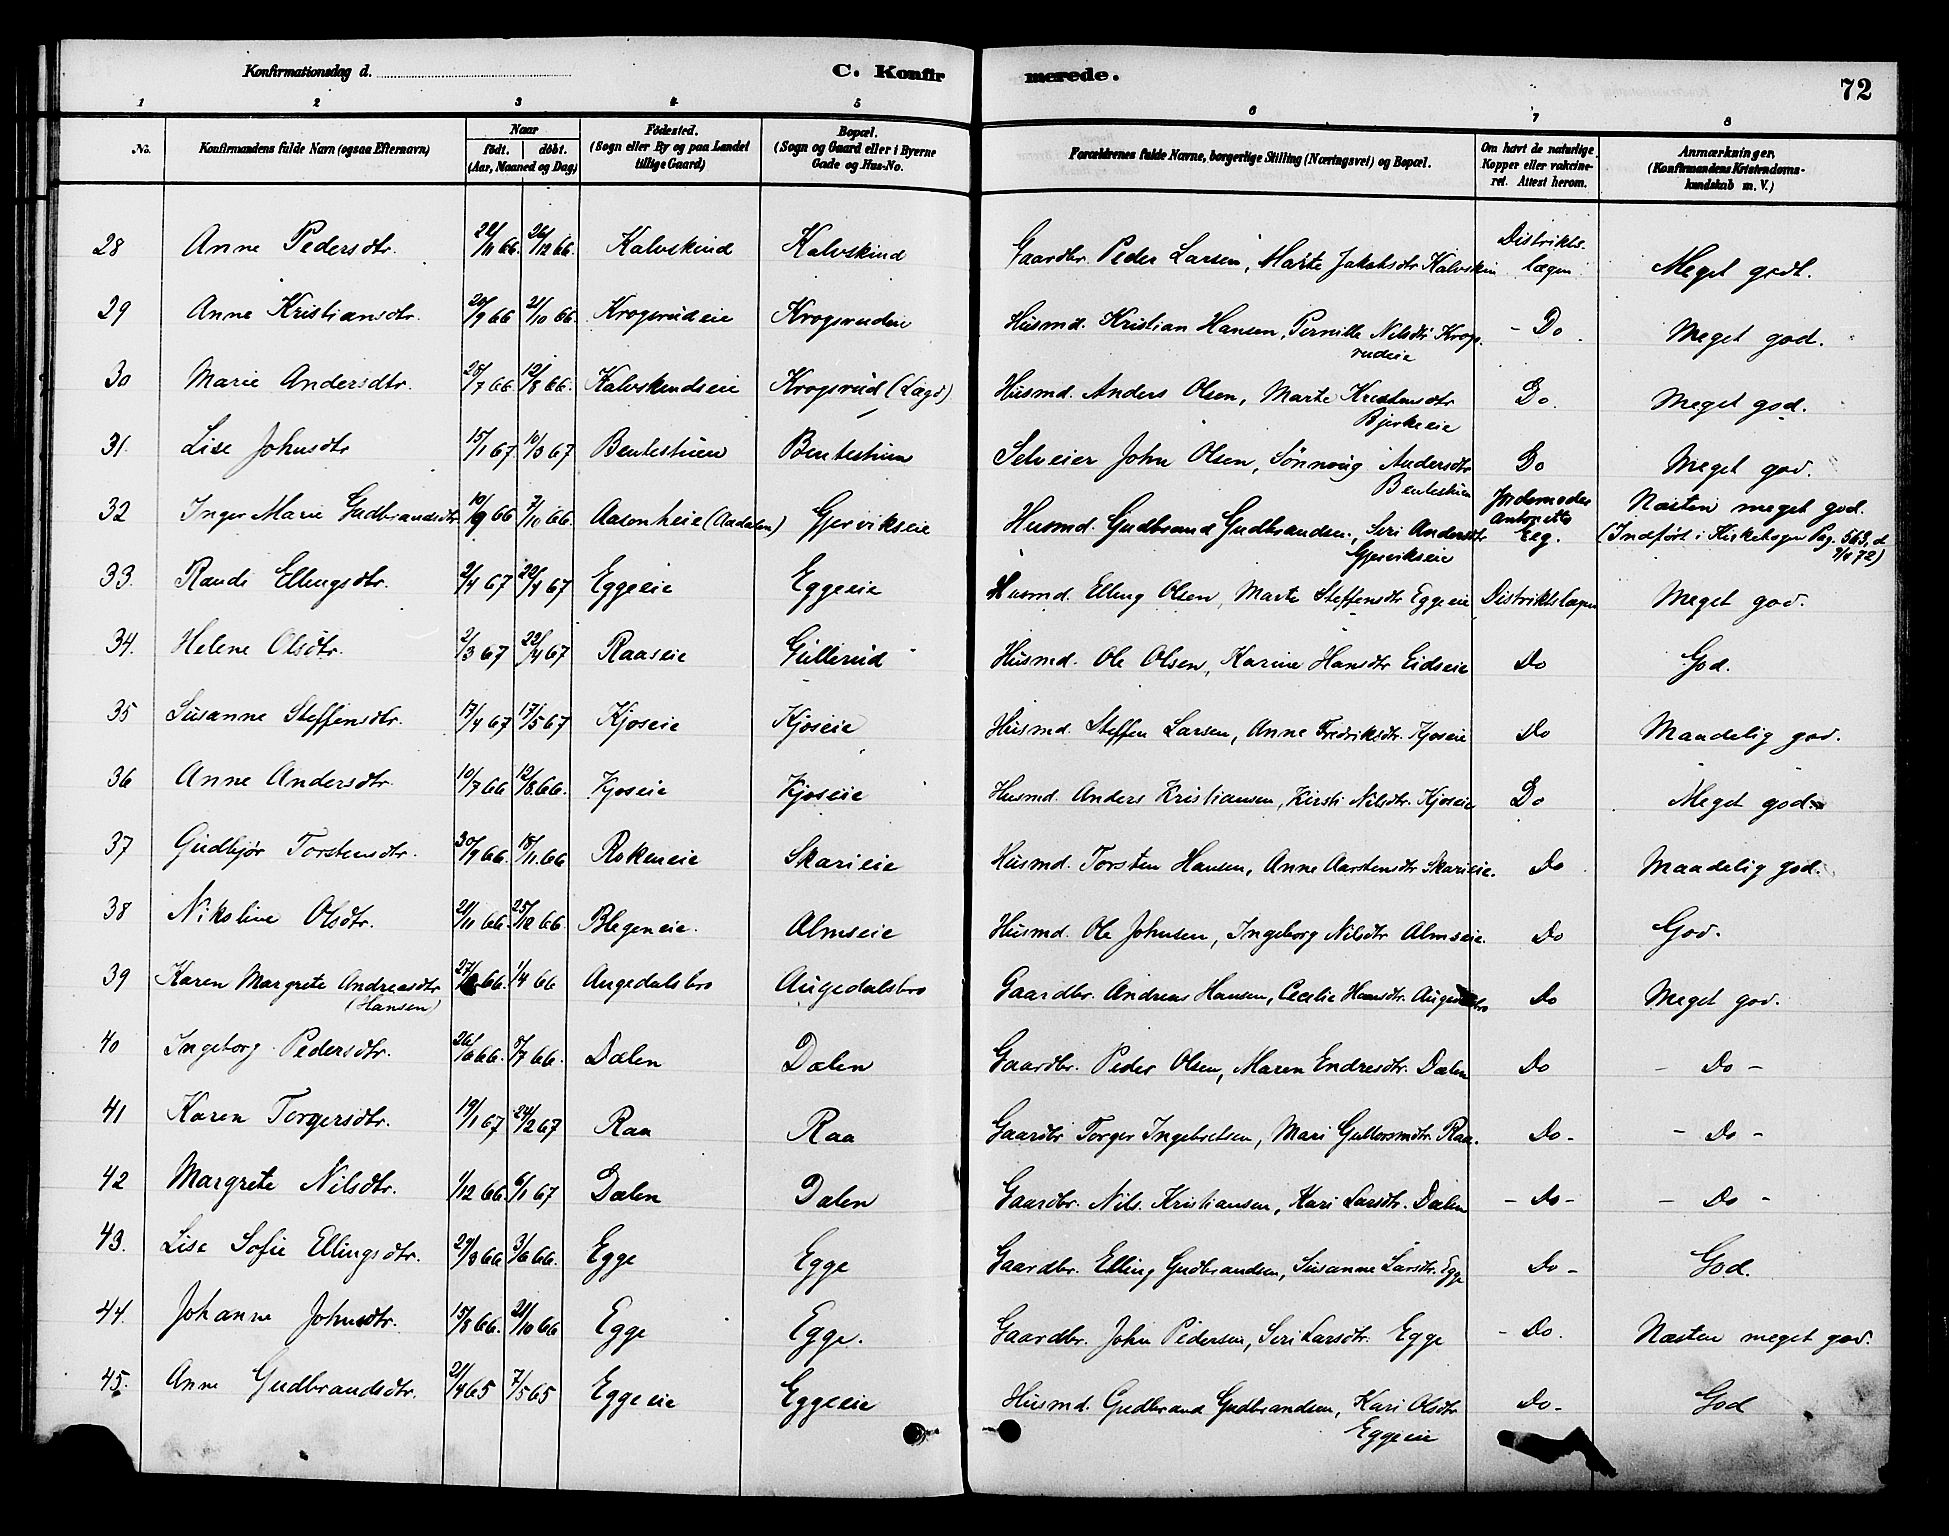 Konfirmationsdag d.
C. Konfirmerede.
72
1 2 3 4 5 6 7 8
No.
Konfirmandens fulde Navn (ogsaa Efternavn)
Naar født. døbt. (Aar, Maaned og Dag)
Fødested. (Sogn eller By og paa Landet tillige Gaard)
Bopæl. (Sogn og Gaard eller i Byerne Gade og Hus-No.
Forældrenes fulde Navne, borgerlige Stilling (Næringsvei) og Bopæl.
Om havt de naturlige Kopper eller vakcineret. Attest herom.
Anmærkninger. (Konfirmandens Kristendomskundskab m. V.)
28 Anne Pedersdtr. 22/11 66. 26/12 66. Kalvskind Kalvskind Gaardbr. Peder Larsen, Marte Jakobsdtr Kalvskin Distriktslægen Meget godt.
29 Anne Kristiansdtr. 20/9 66 21/10 66. Krogsrudeie Krogsrudeie Husmd. Kristian Hansen, Pernille Nilsdtr Krogsrudeie - Do Meget god.
30 Marie Andersdtr. 25/7 66. 12/8 66. Kalvskindseie Krogsrud (Lægd) Husmd. Anders Olsen, Marte Kristensdtr Bjerkeeie Do. Meget god.
31. Lise Johnsdtr 15/1 67 10/3 67 Bentestuen Bentestuen Selveier John Olsen, Sønnøug Andersdtr Bentestuen Do Meget god.
32 Inger Marie Gudbrandsdtr 10/9 66 7/10 66. Aasenheie (Aadalen) Gjervikseie Husmd. Gudbrand Gudbrandsen, Siri Andersdtr Gjervikseie Jordemoder Antonette Eeg. Næsten meget god. (Indført i Kirkebogen Pag. 563, d
33. Randi Ellingsdtr. 2/4 67 22/4 67 Eggeeie Eggeeie Husmd. Elling Olsen, Marte Steffensdtr Eggeeie Distriktslægen Meget god.
34. Helene Olsdtr. 2/3 67 22/4 67 Raaseie Gullerud Husmd. Ole Olsen, Karine Hansdtr Eidseie Do God.
35 Susanne Steffensdtr. 17/4 67 17/5 67 Kjoseie Kjoseie Husmd. Steffen Larsen, Anne Fredriksdtr. Kjoseie Do Maadelig god.
36 Anne Andersdtr. 10/7 66 12/8 66. Kjoseie Kjoseie Husmd. Anders Kristiansen, Kirsti Nilsdtr. Kjoseie Do Meget god.
37 Gudbjør Torstensdtr. 30/9 66. 18/11 66 Rokeneie Skarieie Husmd. Torsten Hansen, Anne Aarstensdtr Skarieie. Do Maadelig god.
38 Nikoline Olsdtr. 21/11 66. 25/12 66. Blegeneie. Almseie Husmd. Ole Johnsen, Ingeborg Nilsdtr Almseie. Do God.
39 Karen Margrete Andreasdtr (Hansen) 66. 1/4 66 Augedalsbro Augedalsbro Gaardbr. Andreas Hansen, Cecelie Hansdtr. Do Meget god.
40 Ingeborg Pedersdtr. 26/6 66. 5/7 66. Dælen Dælen Gaardbr. Peder Olsen, Maren Endresdtr. Dælen Do - Do -
41 Karen Torgersdtr. 19/1 67 24/2 67 Raa Raa Gaardbr Torger Ingebretsen, Mari Gulbrandsdtr. Raa. Do - - Do -
42 Margrete Nilsdtr. 1/12 66. 6/1 67 Dælen Dælen Gaardbr. Nils Kristiansen, Kari Larsdtr. Dælen - Do - - Do -
43. Lise Sofie Ellingsdtr. 29/3 66 3/6 66. Egge Egge Gaardbr. Elling Gudbrandsen, Susanne Larsdtr. Egge Do - God.
44. Johanne Johnsdtr. 15/8 66. 21/10 66 Egge Egge. Gaardbr. John Pedersen, Siri Larsdtr. Egge - Do. Næsten meget god.
45. Anne Gudbrandsdtr. 21/4 65 7/5 65 Eggeeie Eggeeie Husmd. Gudbrand Gudbrandsen, Kari Olsdtr Eggeeie Do - God